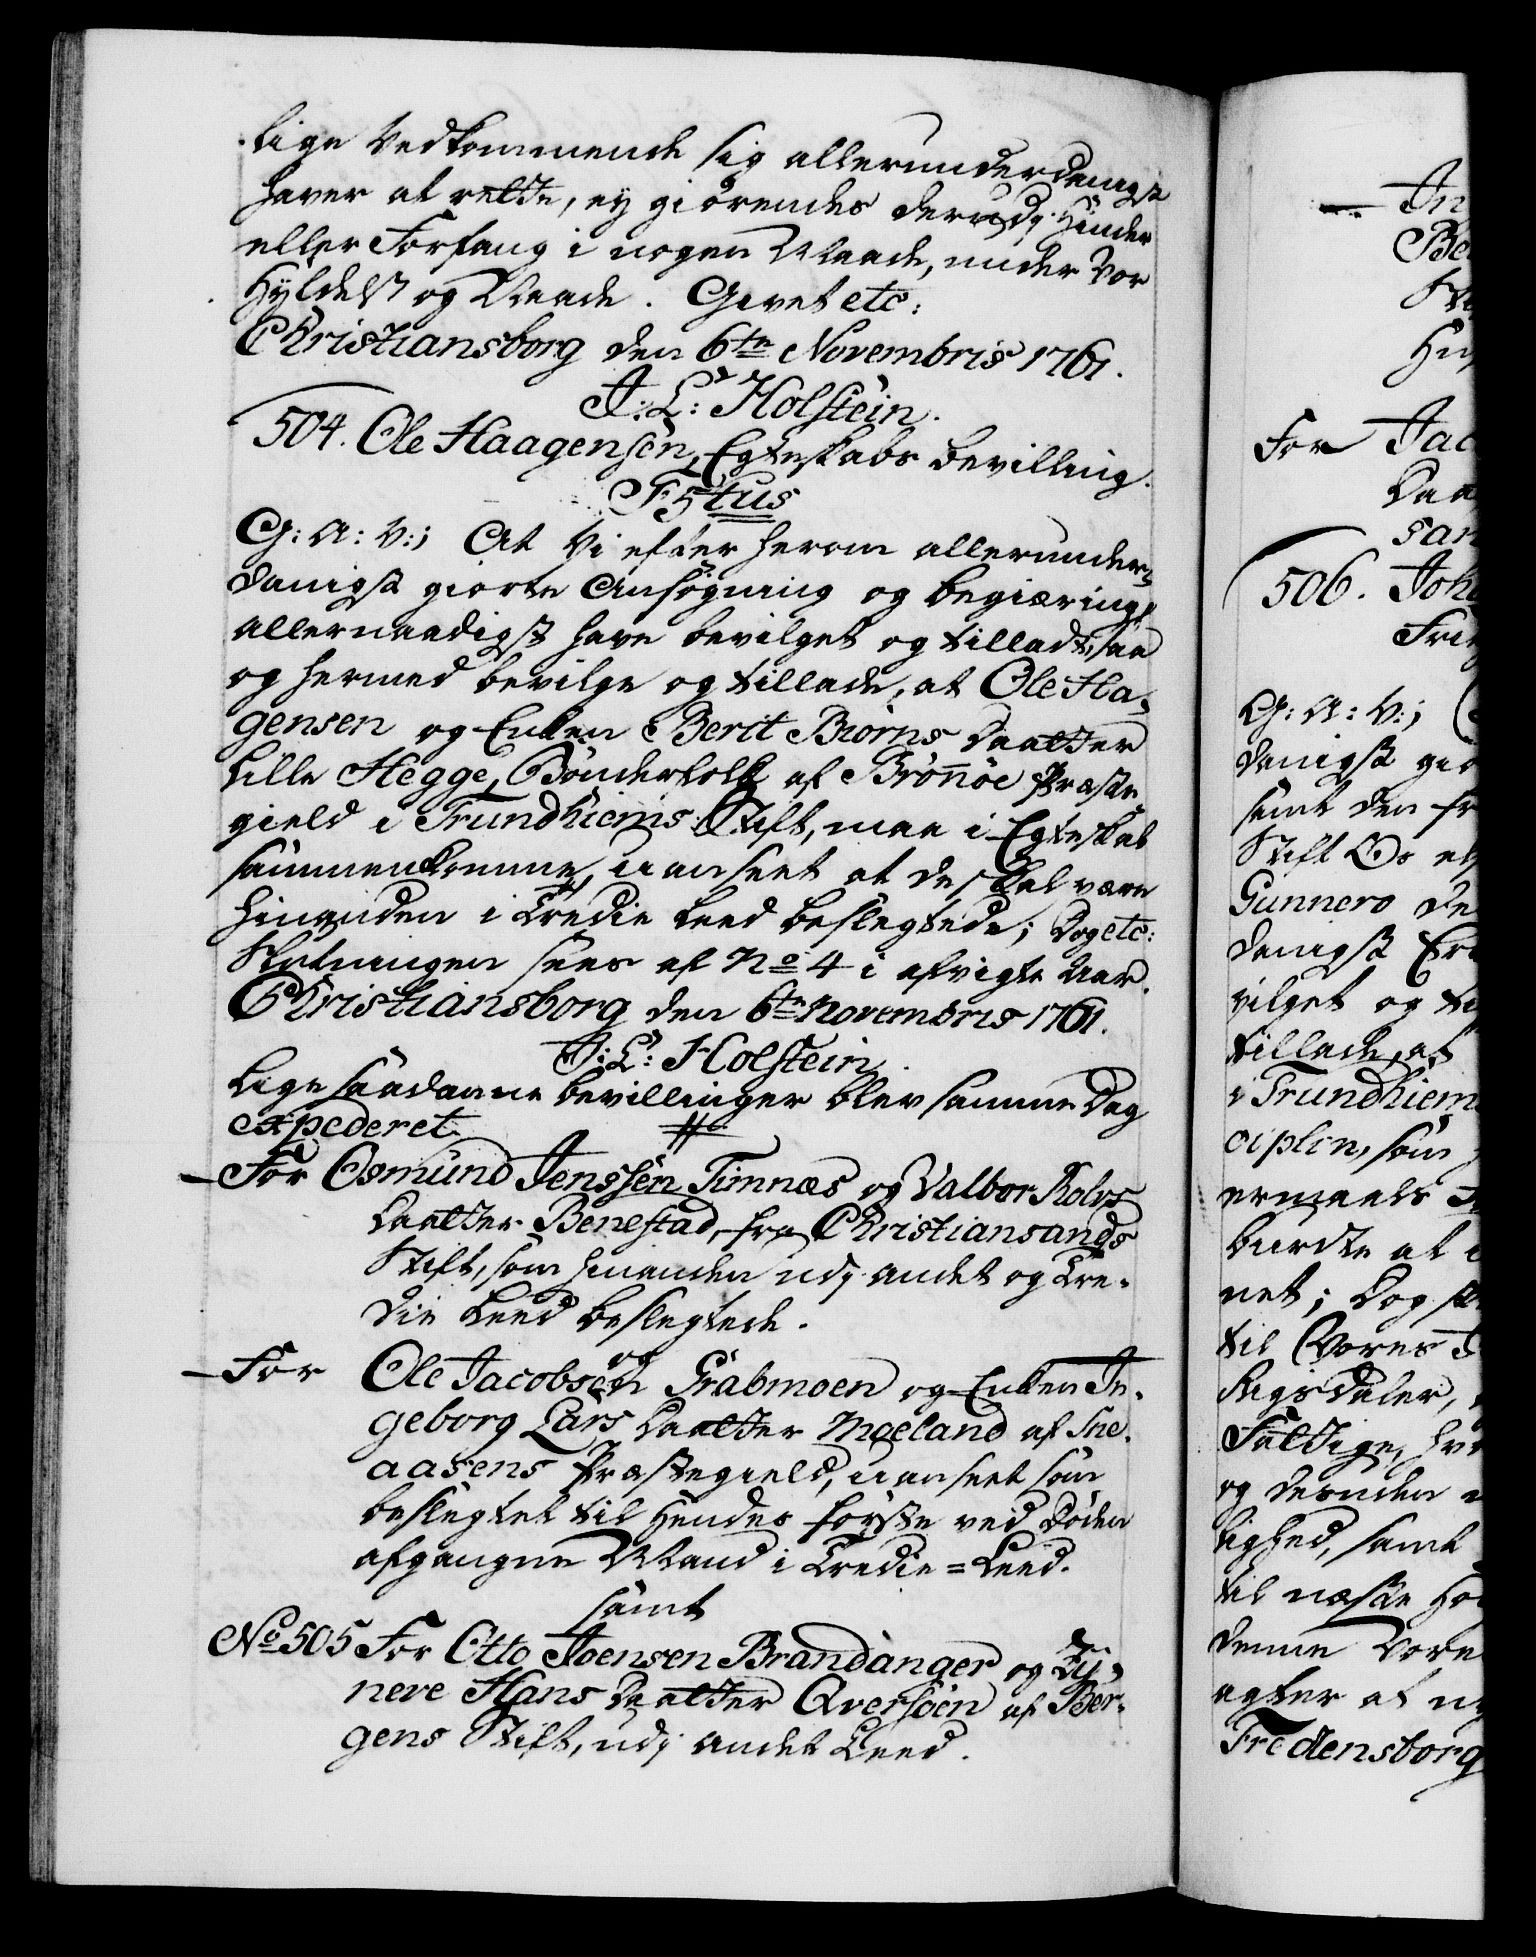 lige Vedkommende sig allerunderdanigst
haver at rette, ey giörendes derudj Hinder
eller Forfang i nogen Maade, under Vor
Hyldest og Naade. Givet etc:
Christiansborg den 6te Novembris 1761.
J: L: Holstein.
504. Ole Haagensen, Egteskabs Bevilling.
F5tus
G: A: V:; At Vi efter herom allerunder-
danigst giorte Ansögning og Begiæring,
allernaadigst have bevilget og tilladt, saa
og hermed bevilge og tillade, at Ole Ha-
gensen og Enken Berit Biörns Daatter
Lille Hegge, Bönderfolk af Brönöe Præste-
gield i Trundhiems Stift, maa i Egteskab
sammenkomme, uanseet at de skal være
hinanden i Tredie Leed beslegtede; Dog etc:
Slutningen sees af No 4 i afvigte Aar.
Christiansborg den 6te Novembris 1761.
J: L: Holstein.
Lige saadanne Bevillinger blev samme Dag
expederet.
For Osmund Jenssen Timnæs og Valbor Rolvs
Daatter Benestad, fra Christiansands
Stift, som hinanden udj andet og Tre-
die Leed beslegtede.
og
For Ole Jacobsen Grabmoen og Enken In-
geborg Lars Daatter Moeland af Sne-
aasens Præstegield, uanseet som
beslegtet til Hendes förste ved Döden
afgangne Mand i Tredie=Leed.
samt
No 505 For Otto Joensen Brandanger og Sy-
nere Hans Daatter Qversöen af Ber-
gens Stift, udj andet Leed.
In
For Jac
Daa
san
506. Joh
G: A: V:;
danigst gio
samt den fr
Stift Os
Gunnero
danigst Er
vilget og ti
tillade, at
i Trundhiem
ciplin, som
ermeels
burdte at
net; Dog
til Vores
Rigsdaler,
Fattige, hv
og desuden
lighed, samt
til næste
denne Vore
agter at
Fredensborg